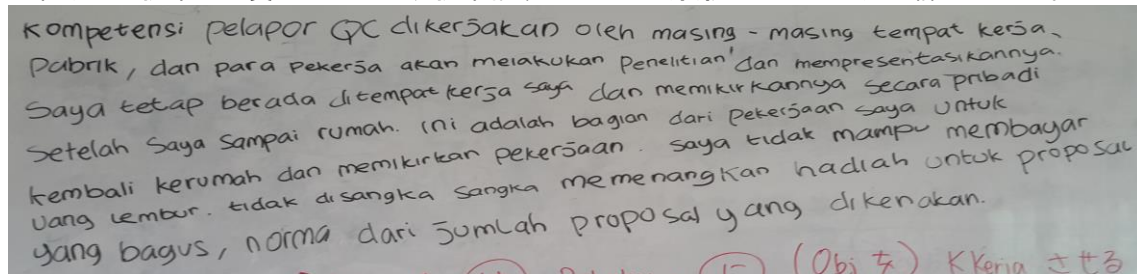 Kompetensi pelapor QC dikerjakan oleh masing-masing tempat kerja,
Pabrik, dan para pekerja akan melakukan penelitian' dan mempresentasikannya.
Saya tetap berada ditempat kerja saya dan memikirkannya secara pribadi
setelah saya sampai rumah. Ini adalah bagian dari pekerjaan saya untuk
kembali kerumah dan memikirkan pekerjaan. saya tidak mampu membayar
uang lembur. tidak disangka sangka memenangkan hadiah untuk proposal
yang bagus, norma dari jumlah proposal yang dikenakan.
(Obj を) Kkerja